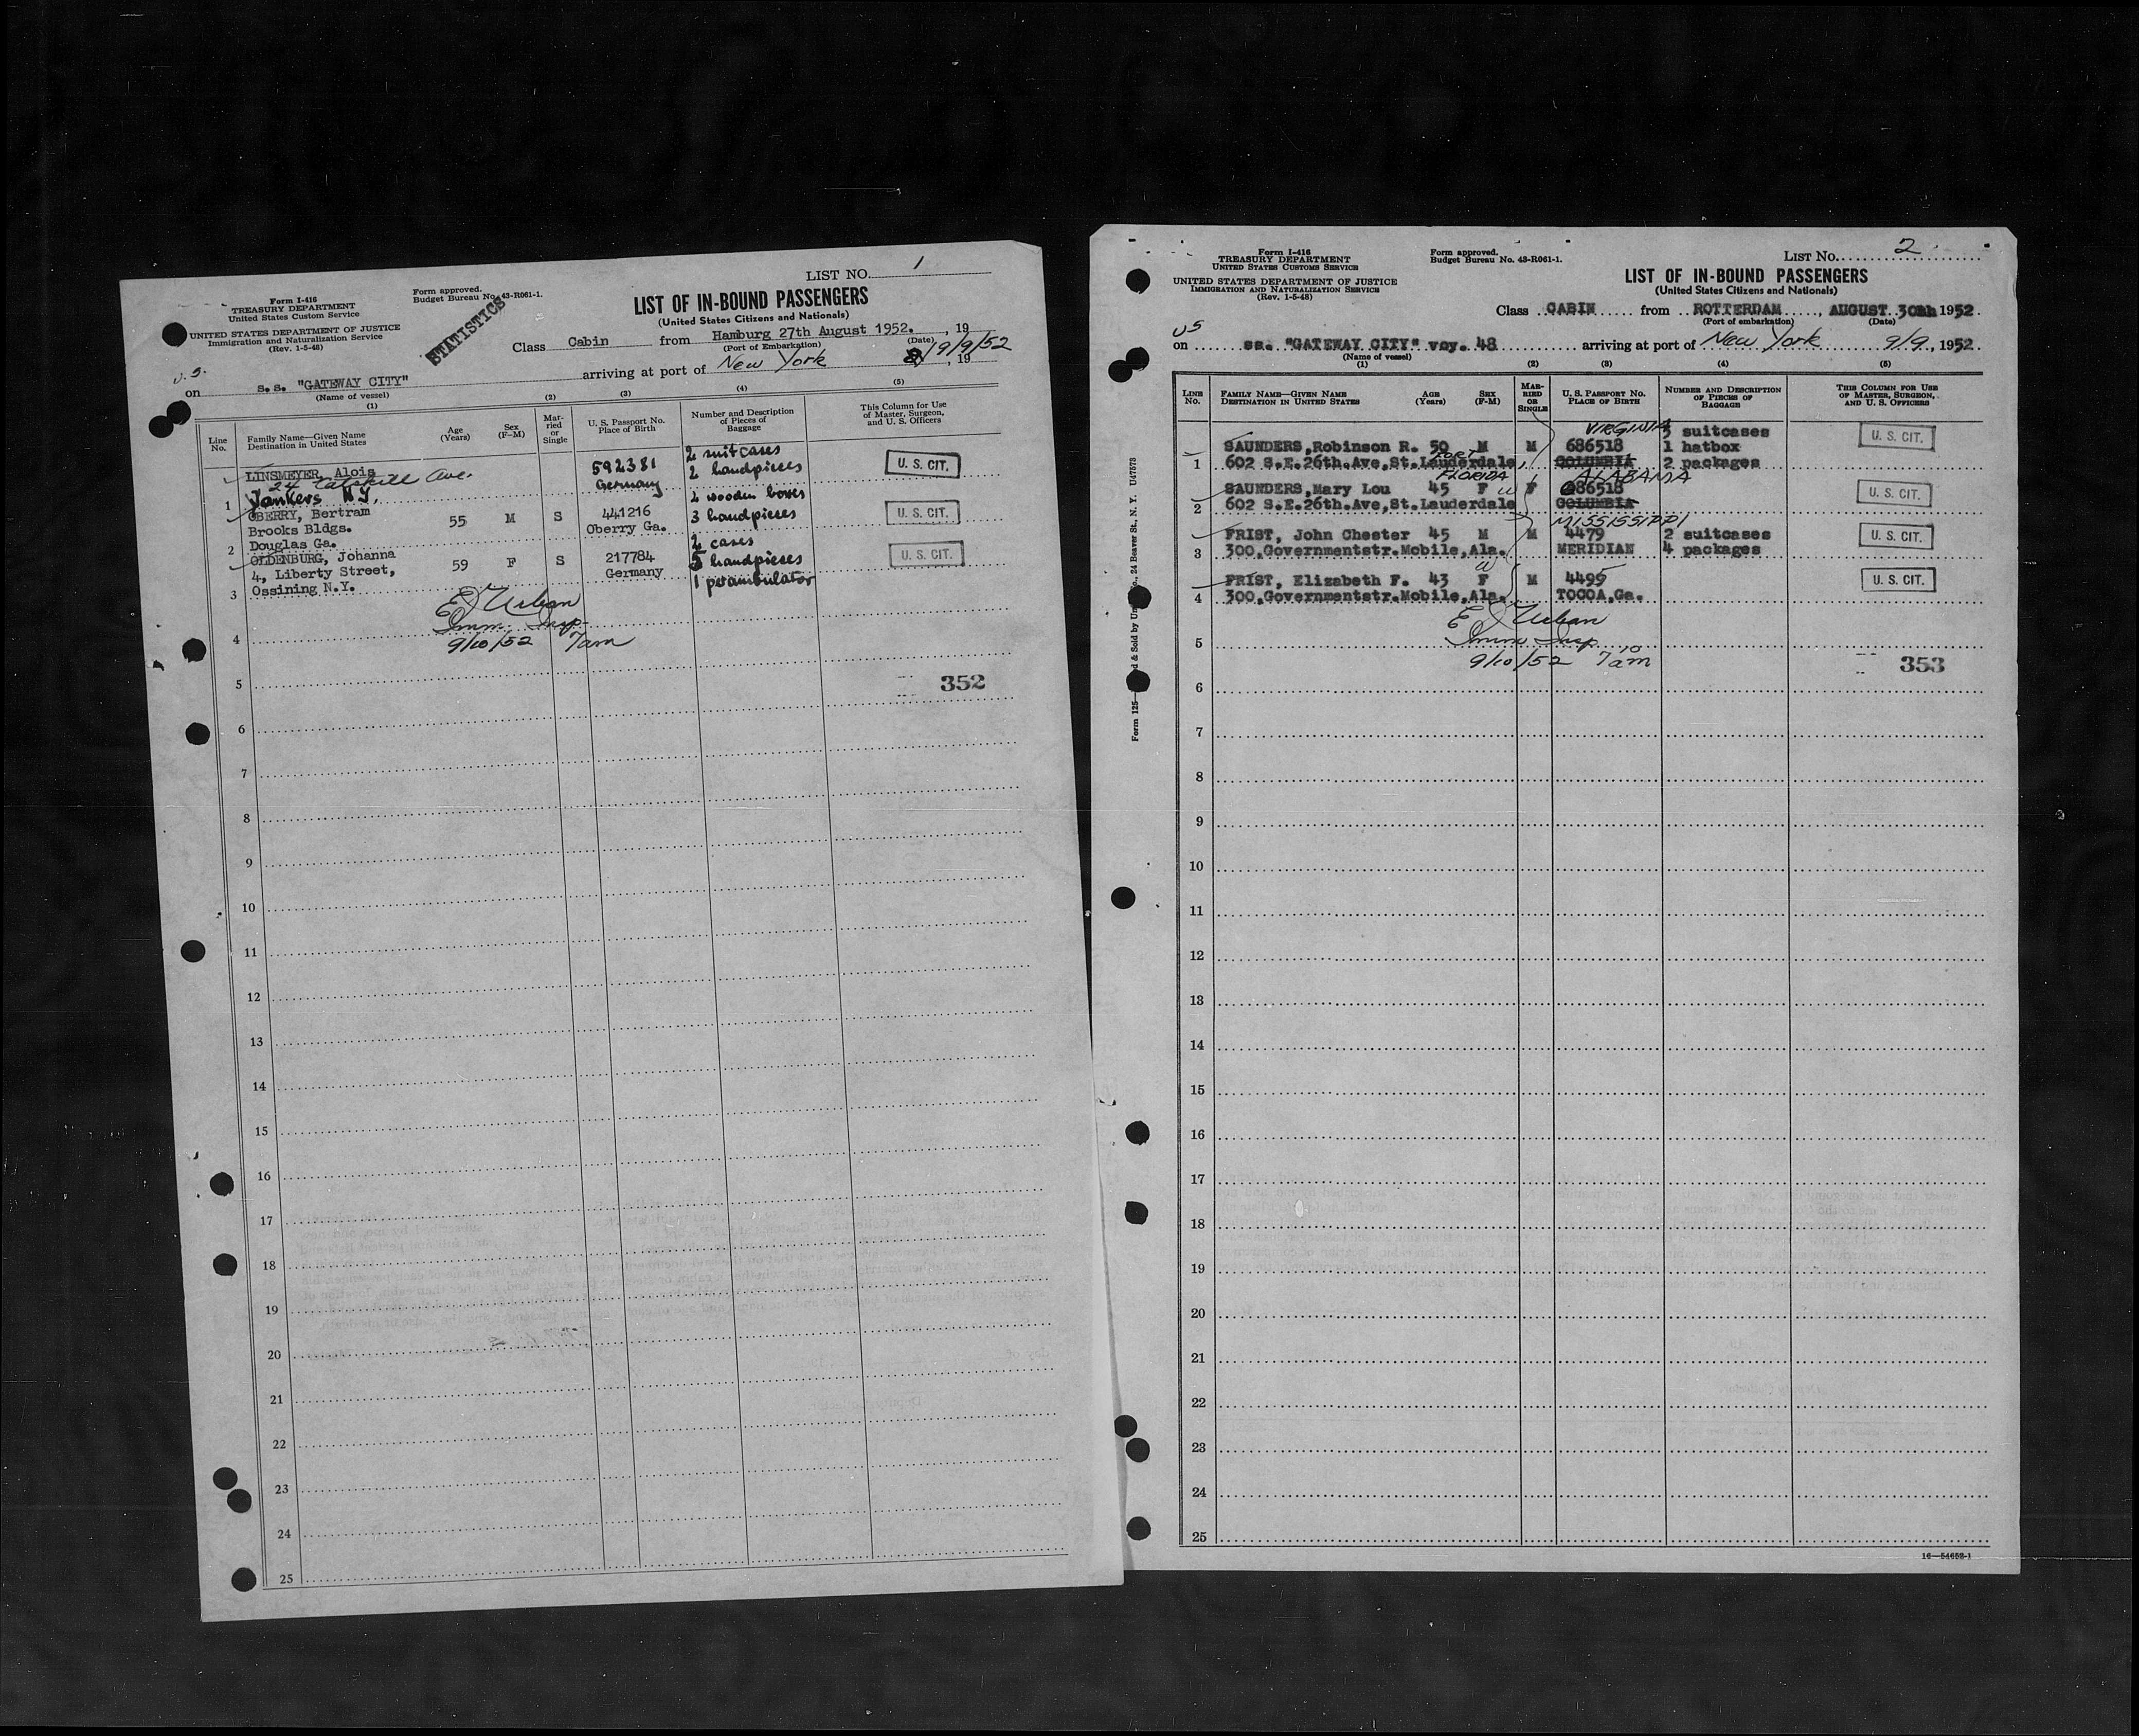 LIST NO. 1
Form I-416
TREASURY DEPARTMENT
United States Custom Service
UNITED STATES DEPARTMENT OF JUSTICE
Immigration and Naturalization Service
(Rev. 1-5-48)
Form approved.
Budget Bureau No. 43-R061-1.
STATISTICS
LIST OF IN-BOUND PASSENGERS
(United States Citizens and Nationals)
Class Cabin from Hamburg 27th August 1952. , 19
(Port of Embarkation) (Date)
U.S.
on s.s. "GATEWAY CITY" arriving at port of New York 9/9/52 , 19
(Name of vessel)
(1) (2) (3) (4) (5)
Line No. Family Name—Given Name Destination in United States Age (Years) Sex (F-M) Married or Single U. S. Passport No. Place of Birth Number and Description of Pieces of Baggage This Column for Use of Master, Surgeon, and U. S. Officers
LINSMEYER, Alois 592381 2 suitcases U. S. CIT.
24 Catskill Ave. Germany 2 handpieces
1 Yonkers N.Y. 2 wooden boxes
OBERRY, Bertram 55 M S 441216 3 handpieces U. S. CIT.
Brooks Bldgs. Oberry Ga.
2 Douglas Ga. 2 cases
OLDENBURG, Johanna 59 F S 217784 5 handpieces U. S. CIT.
4, Liberty Street, Germany 1 perambulator
3 Ossining N.Y.
E J Urban
Imm. Insp.
4 9/10/52 7am
5 352
6
7
8
9
10
11
12
13
14
15
16
17
18
19
20
21
22
23
24
25
LIST NO. 2
Form I-416
TREASURY DEPARTMENT
UNITED STATES CUSTOMS SERVICE
UNITED STATES DEPARTMENT OF JUSTICE
IMMIGRATION AND NATURALIZATION SERVICE
(Rev. 1-5-48)
Form approved.
Budget Bureau No. 43-R061-1.
LIST OF IN-BOUND PASSENGERS
(United States Citizens and Nationals)
Class CABIN from ROTTERDAM , AUGUST 30th 1952.
(Port of embarkation) (Date)
US
on ss. "GATEWAY CITY" voy. 48 arriving at port of New York 9/9, 1952.
(Name of vessel)
(1) (2) (3) (4) (5)
LINE No. FAMILY NAME—GIVEN NAME DESTINATION IN UNITED STATES AGE (Years) SEX (F-M) MARRIED OR SINGLE U. S. PASSPORT NO. PLACE OF BIRTH NUMBER AND DESCRIPTION OF PIECES OF BAGGAGE THIS COLUMN FOR USE OF MASTER, SURGEON, AND U. S. OFFICERS
VIRGINIA 3 suitcases
SAUNDERS, Robinson R. 50 M M 686518 1 hatbox U. S. CIT.
1 602 S.E.26th.Ave,St.Lauderdale, FORT COLUMBIA 2 packages
FLORIDA ALABAMA
SAUNDERS, Mary Lou 45 F W F 686518 U. S. CIT.
2 602 S.E.26th.Ave,St.Lauderdale COLUMBIA
MISSISSIPPI
FRIST, John Chester 45 M M 4479 2 suitcases U. S. CIT.
3 300,Governmentstr.Mobile,Ala. MERIDIAN 4 packages
W
FRIST, Elizabeth F. 43 F M 4495 U. S. CIT.
4 300,Governmentstr.Mobile,Ala. TOCOA,Ga.
E J Urban
5 Imm Insp
9/10/52 7 10 am 353
6
7
8
9
10
11
12
13
14
15
16
17
18
19
20
21
22
23
24
25
16—54652-1